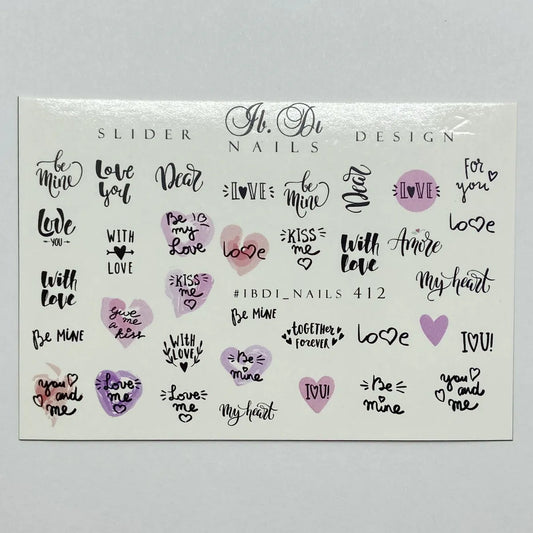 Ib. Di
SLIDER NAILS DESIGN
be
Mine
Love
You
Dear
LOVE
be
Mine
Dear
LOVE
For
you
Love
YOU
WITH
LOVE
Be
my
Love
love
KISS
me
With
Love
Amore
love
With
Love
KISS
me
My heart
#IBDI_NAILS 412
Be MINE
Give me
a kiss
WITH
LOVE
Be MINE
TOGETHER
FOREVER
love
I♡U!
Be
mine
you
and
me
Love
me
Love
me
My heart
I♡U!
Be
mine
you
and
me